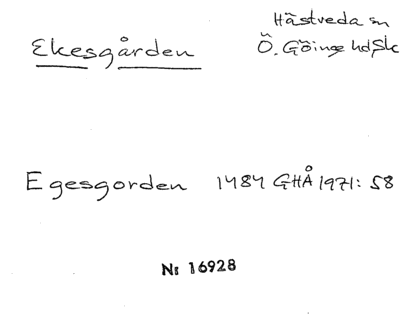 Ekesgården
Hästveda sn
Ö. Göinge hd Sk
Egesgorden 1484 GHÅ 1971: 58
Nr 16928